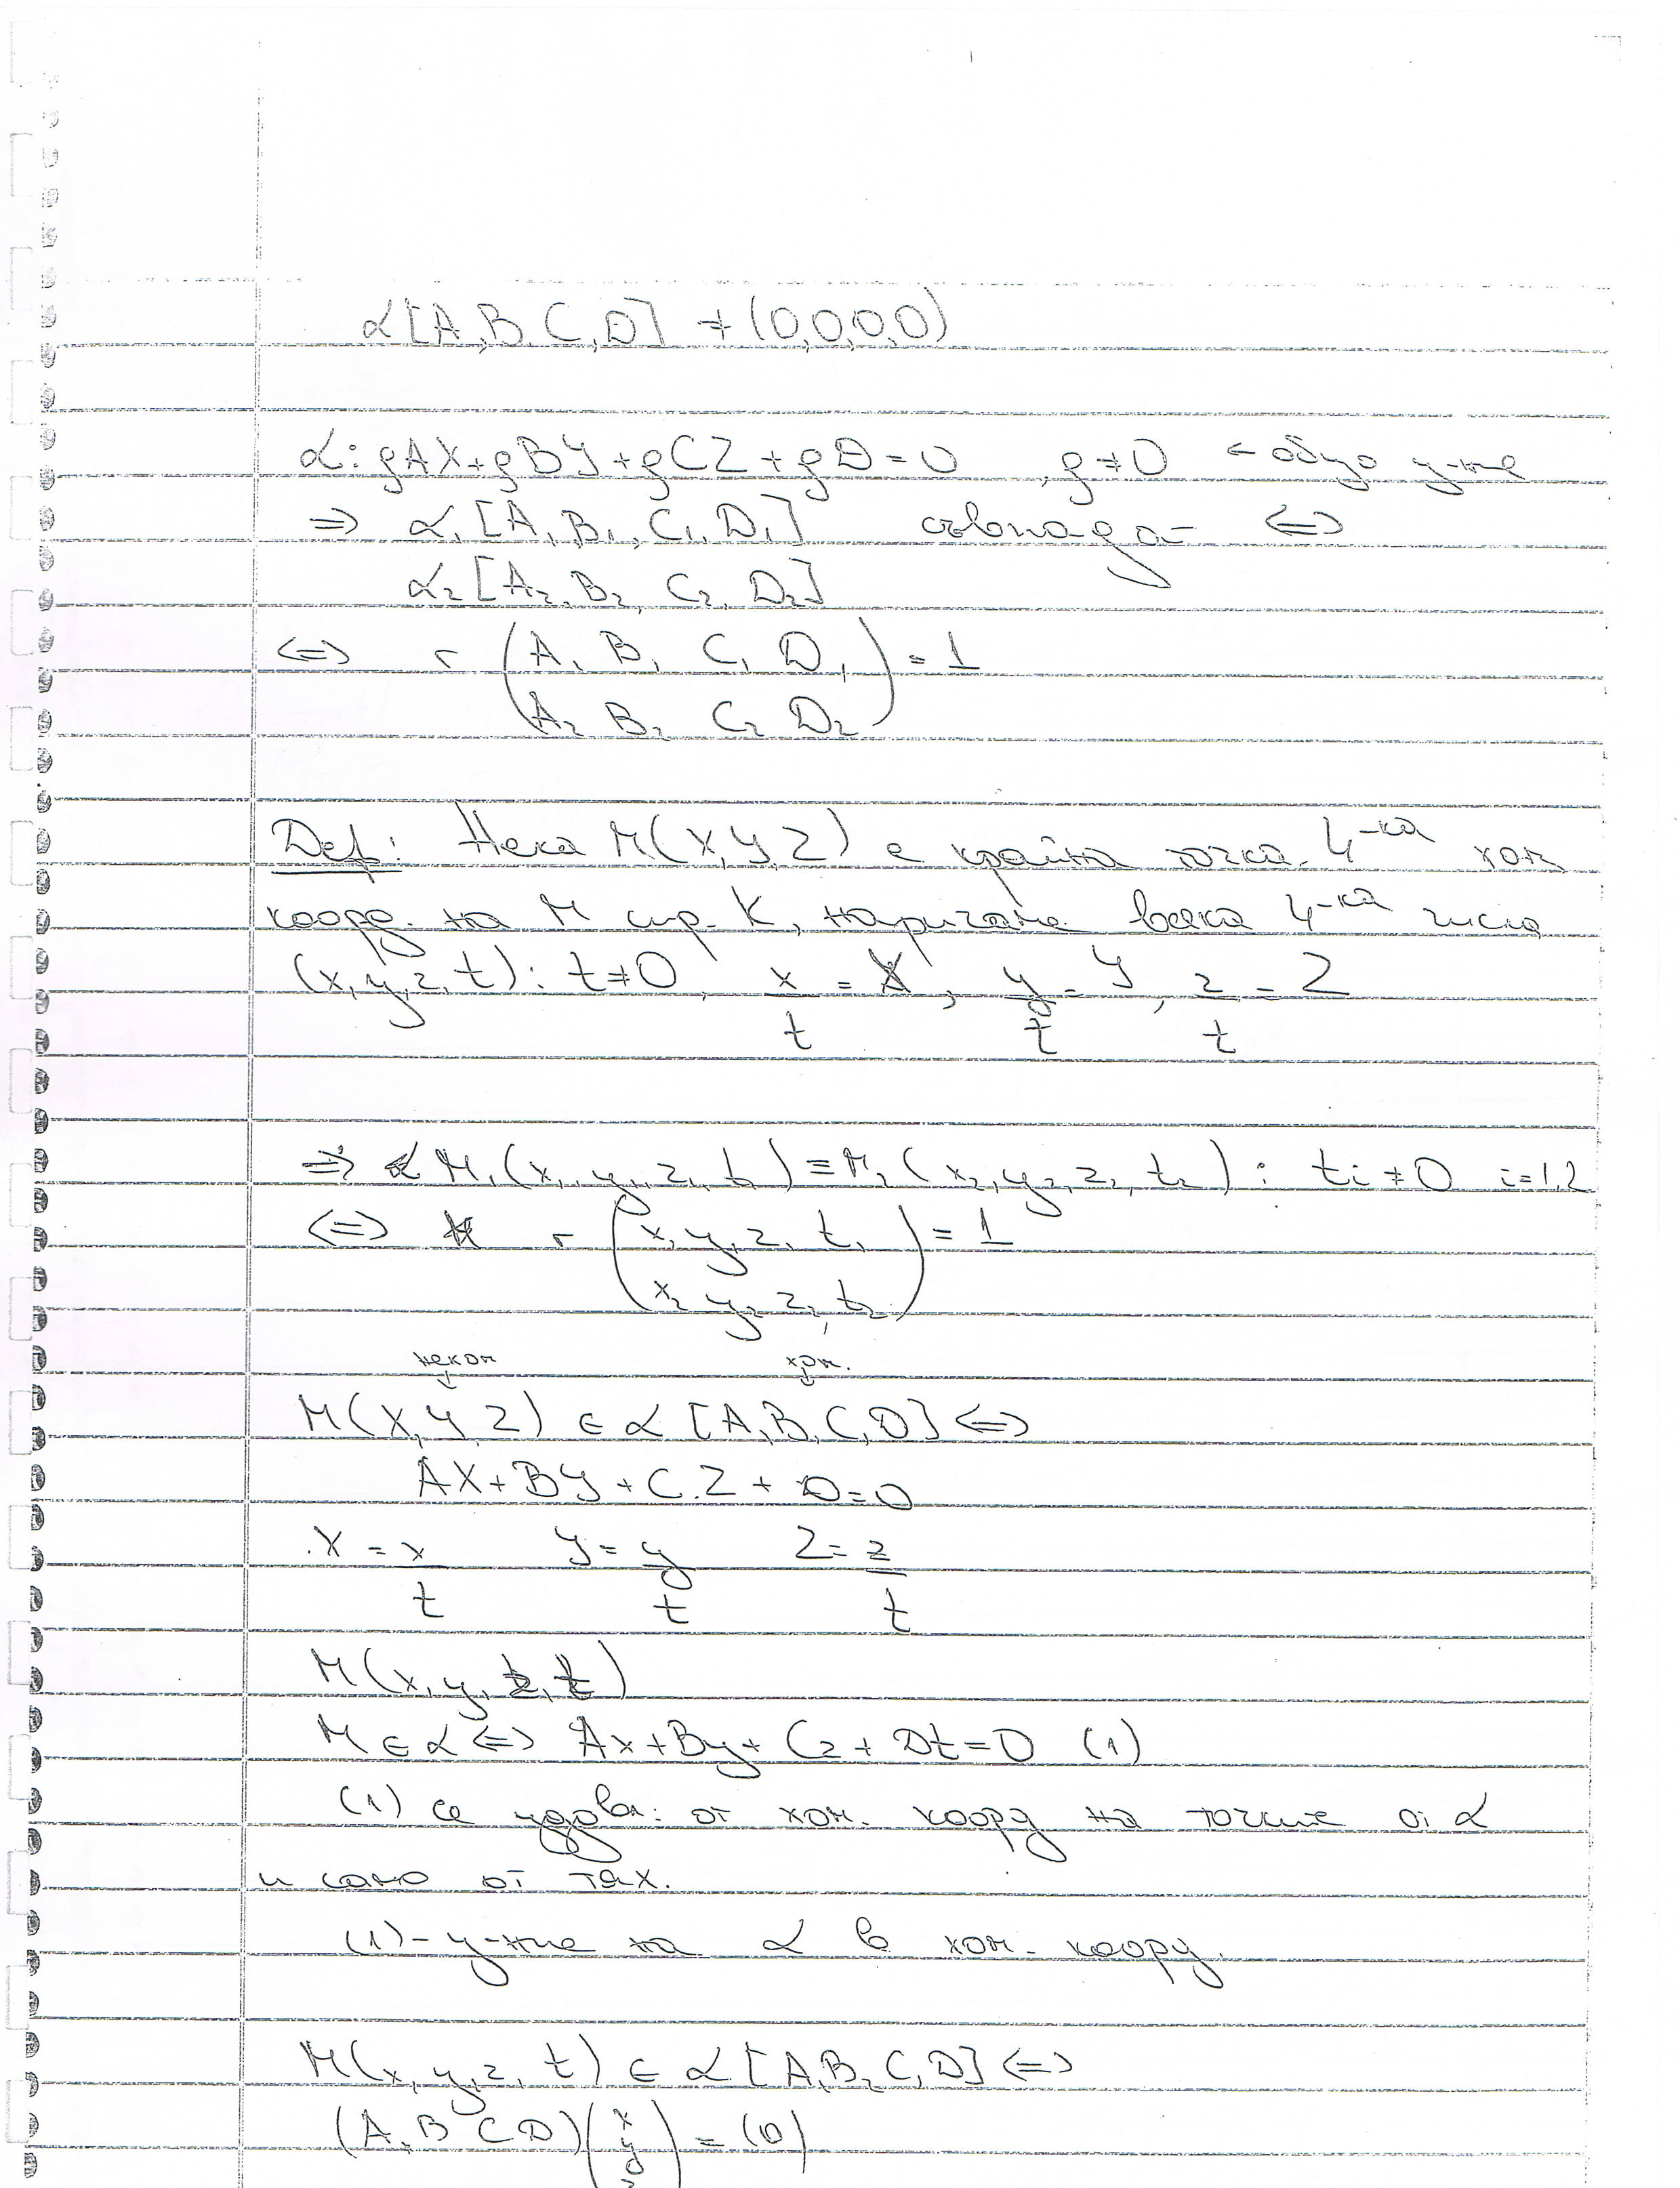 α[A,B,C,D] ≠ (0,0,0,0)
α: ρAX+ρBY+ρCZ+ρD=0, ρ≠0 ← общо у-ние
⇒ α₁[A₁,B₁,C₁,D₁] съвпадат ⇔
α₂[A₂,B₂,C₂,D₂]
⇔ r (A₁ B₁ C₁ D₁) = 1
(A₂ B₂ C₂ D₂)
Деф: Нека M(X,Y,Z) е крайна точка. 4-ка хом.
коорд. на M спр. K, наричаме всяка 4-ка числа
(x,y,z,t): t≠0, x/t = X, y/t = Y, z/t = Z
⇒ M₁(x₁,y₁,z₁,t₁) ≡ M₂(x₂,y₂,z₂,t₂) : ti≠0 i=1,2
⇔ r (x₁ y₁ z₁ t₁) = 1
(x₂ y₂ z₂ t₂)
нехом хом.
M(X,Y,Z) ∈ α [A,B,C,D] ⇔
AX+BY+C.Z+D=0
X = x/t Y = y/t Z = z/t
M(x,y,z,t)
M∈α ⇔ Ax+By+Cz+Dt=0 (1)
(1) се удовл. от хом. коорд на точките от α
и само от тях.
(1)-у-ние на α в хом. коорд.
M(x,y,z,t) ∈ α[A,B,C,D] ⇔
(A,B C D)(x y = (0)